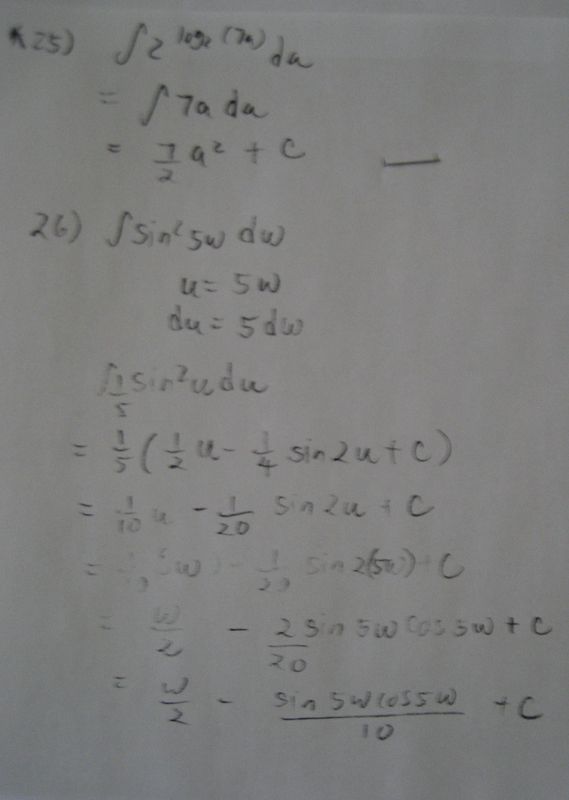 25) ∫ 2^log₂(7a) da
= ∫ 7a da
= 7/2 a² + C
26) ∫ sin² 5w dw
u = 5w
du = 5 dw
∫ 1/5 sin² u du
= 1/5 (1/2 u - 1/4 sin 2u + C)
= 1/10 u - 1/20 sin 2u + C
= (5w) - 1/20 sin 2(5w) + C
= w/2 - 2 sin 5w cos 5w/20 + C
= w/2 - sin 5w cos 5w/10 + C